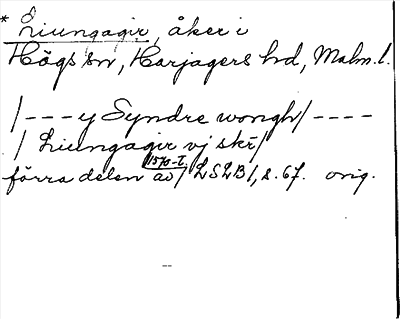 * Liungagir, åker i
Högs sn, Harjagers hd, Malm.l.
/---y Syndre wongh/----
/ Liungagir vj skr/
förra delen av 1570-t. / LSLB 1, s. 67. orig.